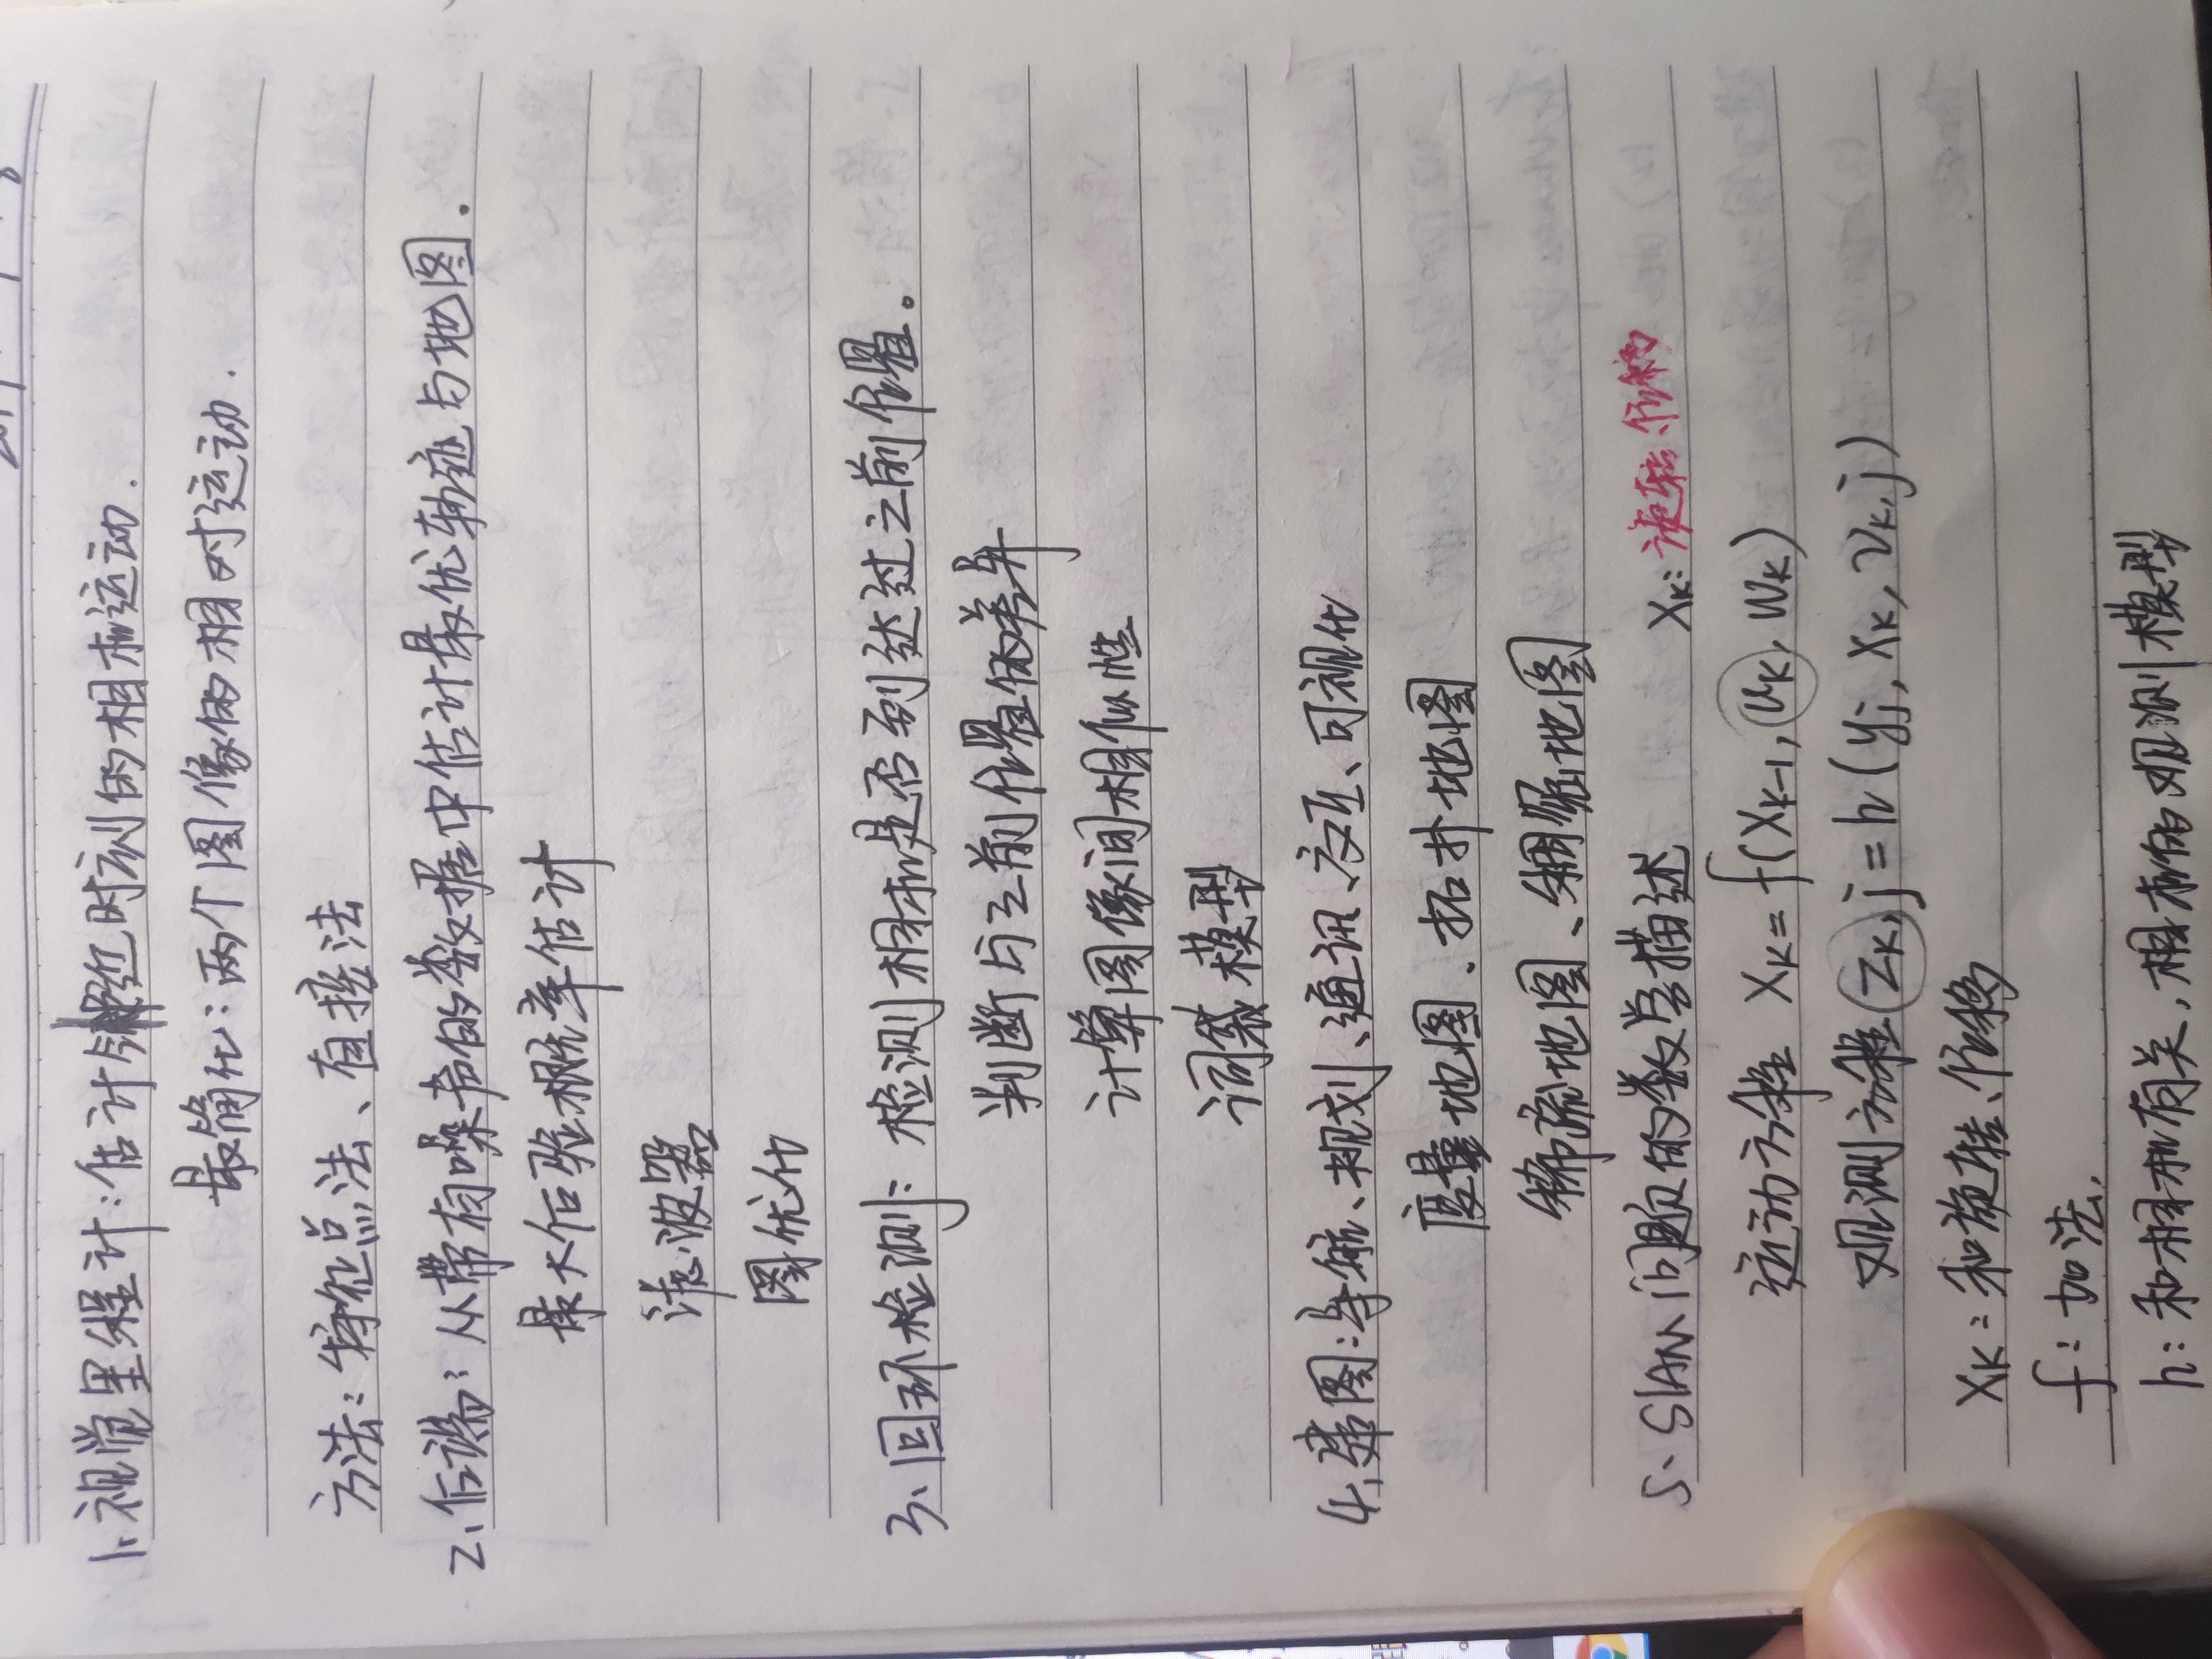 1、视觉里程计：估计邻近时刻的相机运动.
最简化：两个图像的相对运动.
方法：特征点法、直接法
2、后端：从带有噪声的数据中估计最优轨迹与地图.
最大后验概率估计
滤波器
图优化
3、回环检测：检测相机是否到达过之前位置。
判断与之前位置的差异
计算图像间相似性
词袋模型
4、建图：导航、规划、通讯、交互、可视化
度量地图、拓扑地图
稀疏地图、稠密地图
5、SLAM问题的数学描述 Xk：旋转、位移
运动方程 Xk = f(Xk-1, uk, wk)
观测方程 zk,j = h(yj, xk, vk,j)
Xk：和旋转、位移
f：加法.
h：和相机有关，相机的观测模型